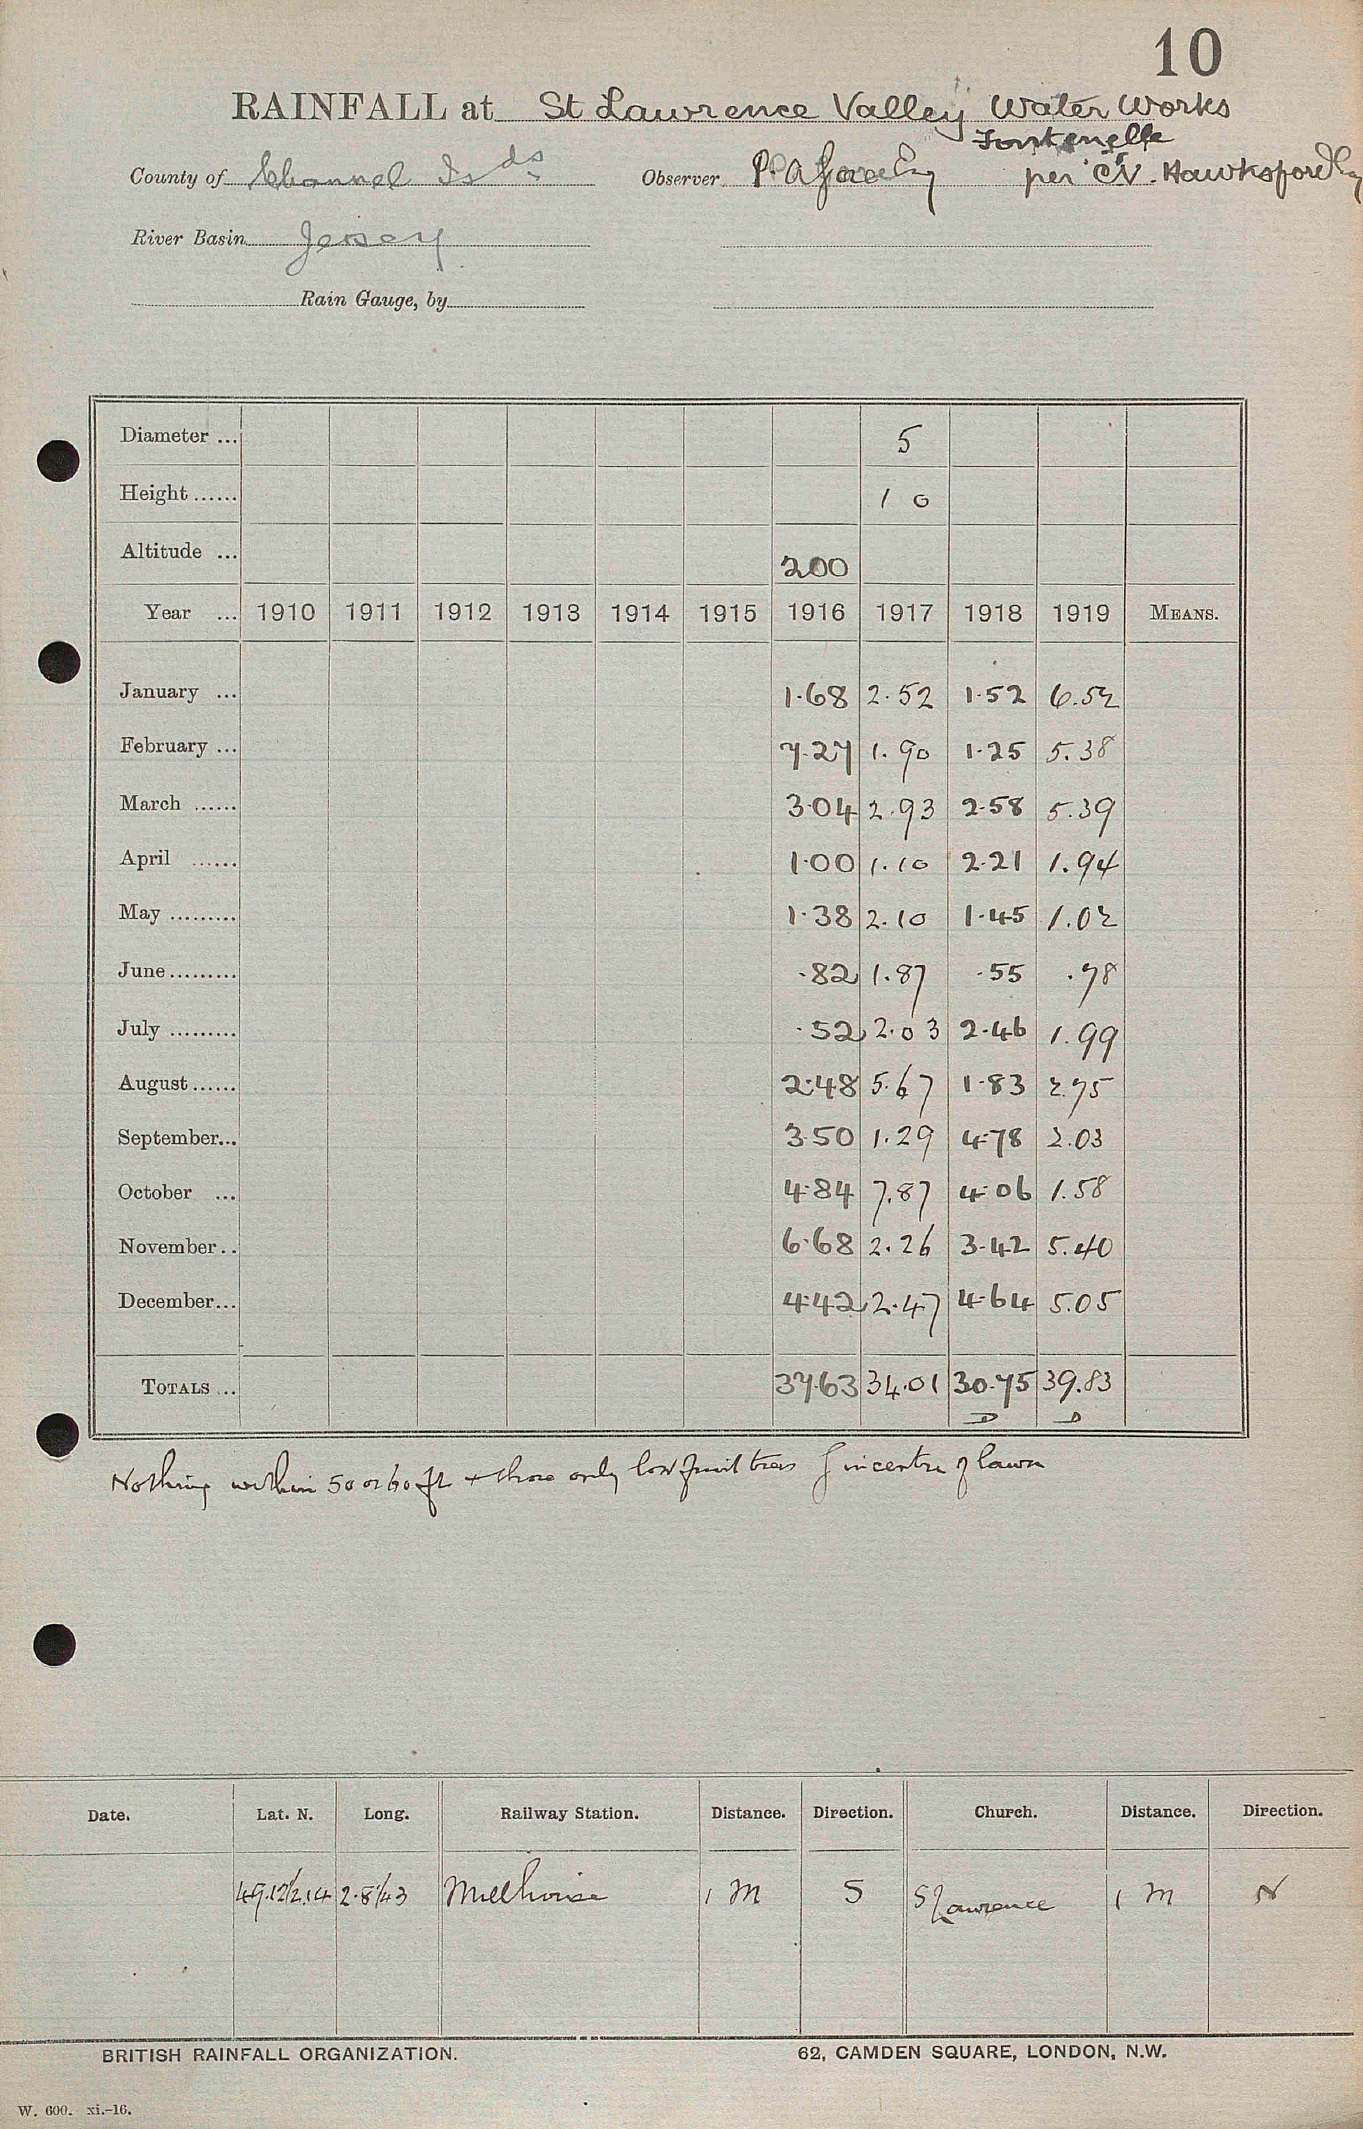 10
RAINFALL at St Lawrence Valley Water Works
Fontenelle
County of Channel Isds Observer P. A. per C. N. Hawksford
River Basin Jersey
Rain Gauge, by
Diameter ... 5
Height ...... 1 0
Altitude ... 200
Year ... 1910 1911 1912 1913 1914 1915 1916 1917 1918 1919 MEANS.
January ... 1.68 2.52 1.52 6.52
February ... 7.27 1.90 1.25 5.38
March ...... 3.04 2.93 2.58 5.39
April ...... 1.00 1.10 2.21 1.94
May ......... 1.38 2.10 1.45 1.02
June ......... .82 1.87 .55 .78
July ......... .52 2.03 2.46 1.99
August ...... 2.48 5.67 1.83 2.75
September... 3.50 1.29 4.78 2.03
October ... 4.84 7.87 4.06 1.58
November .. 6.68 2.26 3.42 5.40
December... 4.42 2.47 4.64 5.05
TOTALS ... 37.63 34.01 30.75 39.83
D D
Nothing within 50 or 60 ft & those only low fruit trees in centre of lawn
Date. Lat. N. Long. Railway Station. Distance. Direction. Church. Distance. Direction.
49.12½.14 2.8/43 Millhouse 1 M S St Lawrence 1 M N
BRITISH RAINFALL ORGANIZATION. 62, CAMDEN SQUARE, LONDON, N.W.
W. 600. xi.-16.